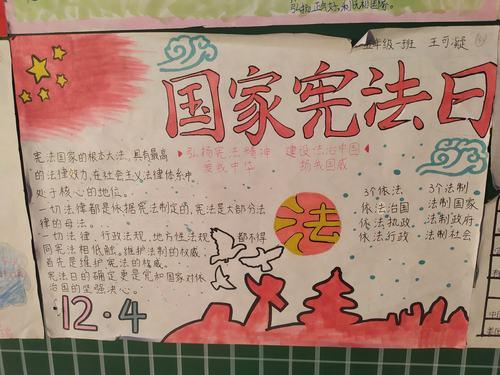 弘扬正气,利民利国家。
五年级一班 王可凝
国家宪法日
宪法国家的根本大法,具有最高
的法律效力,在社会主义法律体系中
处于核心的地位。
一切法律都是依据宪法制定的,宪法是大部分法
律的母法。
一切法律,行政法规,地方性法规 都不得
同宪法相低触。维护法制的权威,
首先是维护宪法的权威。
宪法日的确定更是党和国家对依
治国的坚强决心。
弘扬宪法精神 建设法治中国
爱我中华 扬我国威
法
3个依法 3个法制
依法治国 法制国家
依法执政 法制政府
依法行政 法制社会
12·4